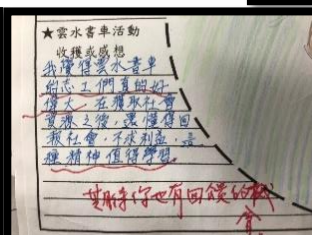 ★雲水書車活動
收穫或感想
我覺得雲水書車
的志工們真的好
偉大,在獲取社會
資源之後,還懂得回
報社會,不求利益,這
種精神值得學習。
期待你也有回饋的機
會。